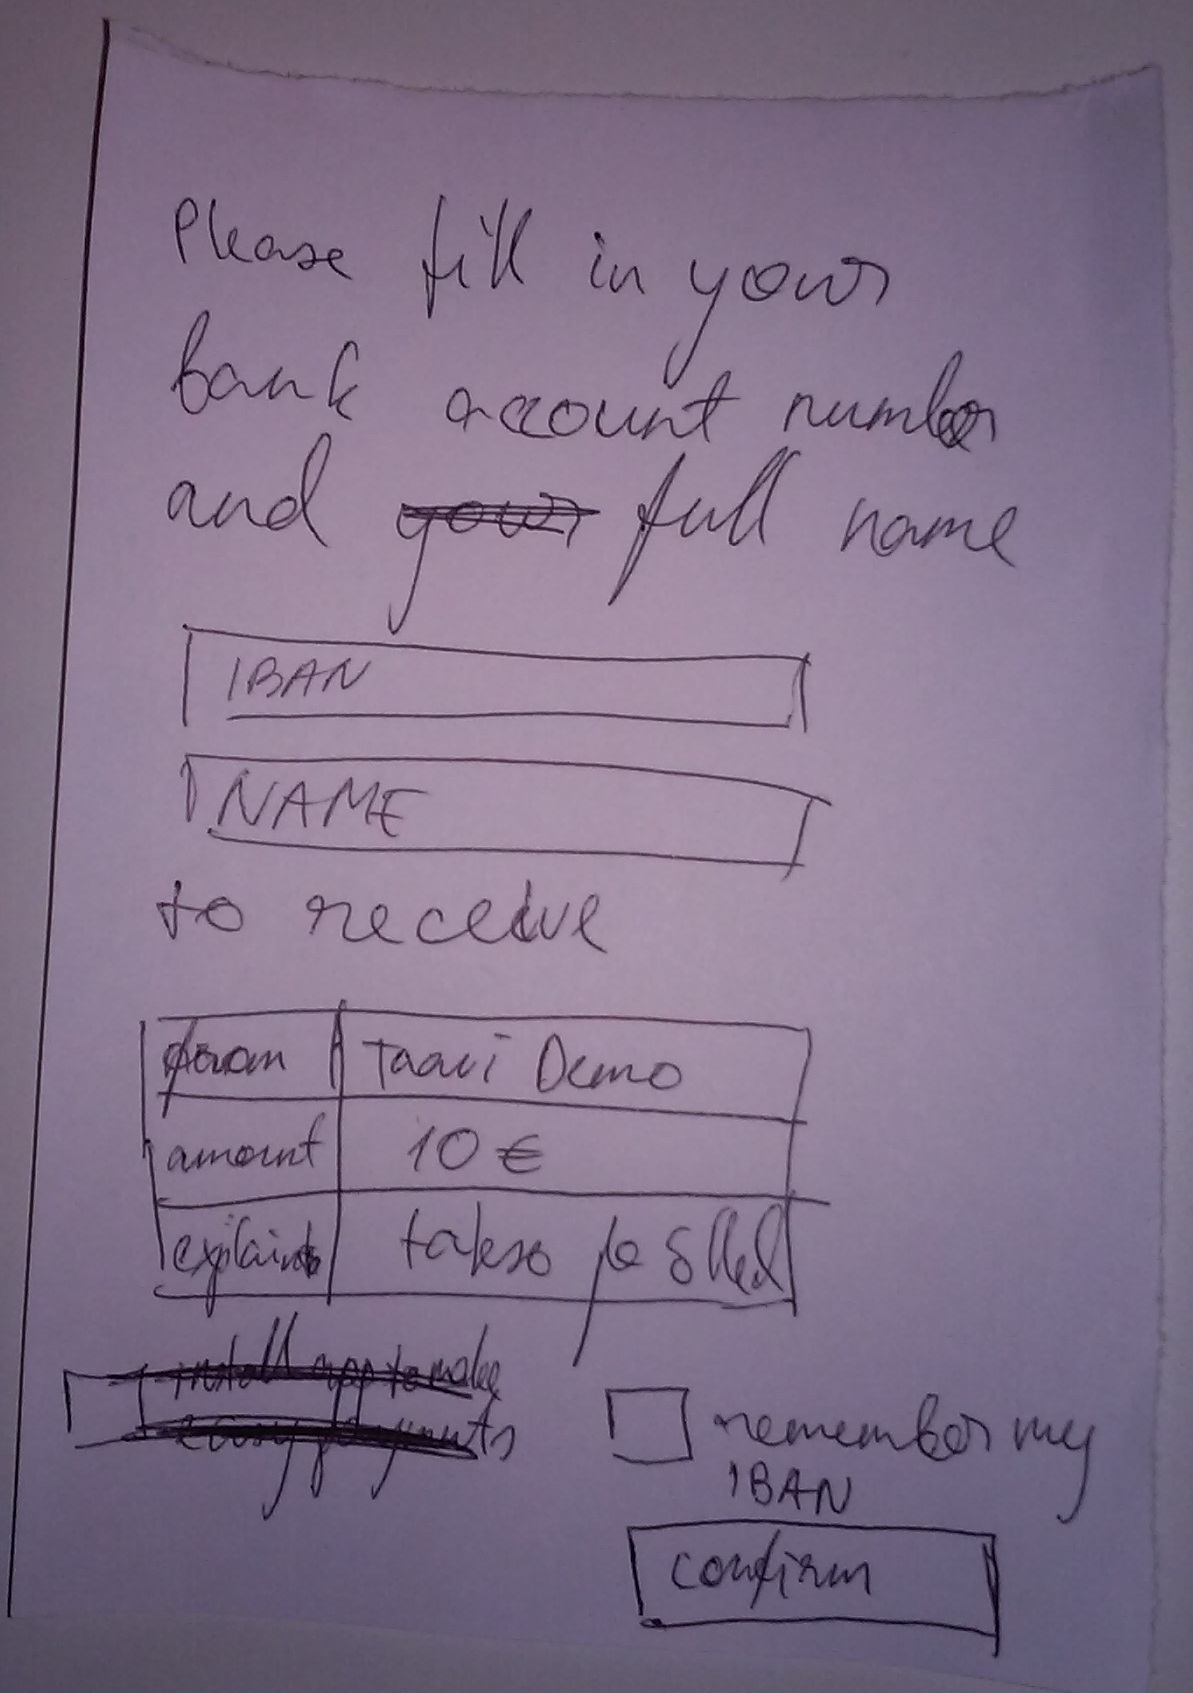 Please fill in your
bank account number
and your full name
IBAN
NAME
to receive
from Taavi Demo
amount 10 €
takso ja õlled
install app to make
easy payments
remember my
IBAN
confirm